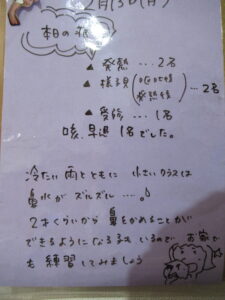 2月13日(月)
本日の
▲ 発熱 … 2名
▲ 様子見(嘔吐後
発熱後) … 2名
▲ 受診 … 1名
咳、早退 1名でした。
冷たい雨とともに 小さいクラスは
鼻水がズルズル……♪
2才くらいから鼻をかめることが
できるようになる子もいるので お家で
も練習してみましょう